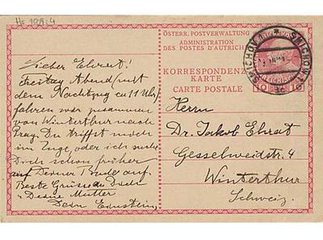 Hs 1019:4
ÖSTERR. POSTVERWALTUNG
ADMINISTRATION
DES POSTES D'AUTRICHE
KORRESPONDENZ-
KARTE
CARTE POSTALE
SMICHOV
10 10
Lieber Ehrat!
Freitag Abend mit
dem Nachtzug ca 11 Uhr
fahren wir zusammen
von Winterthur nach
Prag. Du triffst mich
im Zuge, oder ich suche
Dich schon früher
auf
Beste Grüsse an Dich
Deine Mutter
Dein Einstein
Herrn
Dr. Jakob Ehrat
Gesselweidstr. 4
Winterthur
Schweiz.